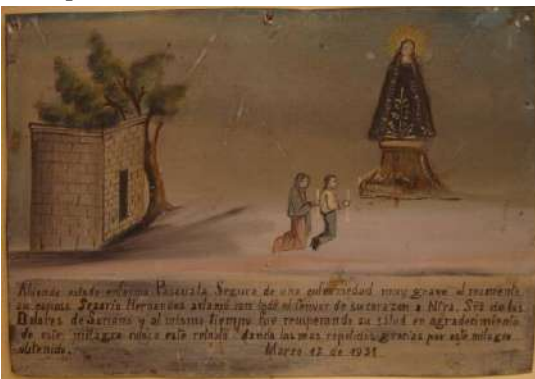 Abiendo estado enferma Pascuala Segura de una enfermedad muy grave al momento
su esposo Sesario Hernandes aclamo con todo el fervor de su corazon a Ntra. Sra. de los
Dolores de Soriano y al mismo tiempo fue recuperando su salud en agradecimiento
de este milagro coloca este retablo dando las mas repetidas gracias por este milagro
obtenido. Marzo 12 de 1931